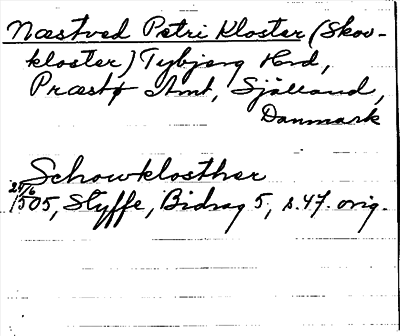 Næstved Petri Kloster (Skov-
kloster) Tybjerg Hrd,
Præstø Amt, Sjælland,
Danmark
Schowklosther
25/6
1505, Styffe, Bidrag 5, s. 47. orig.